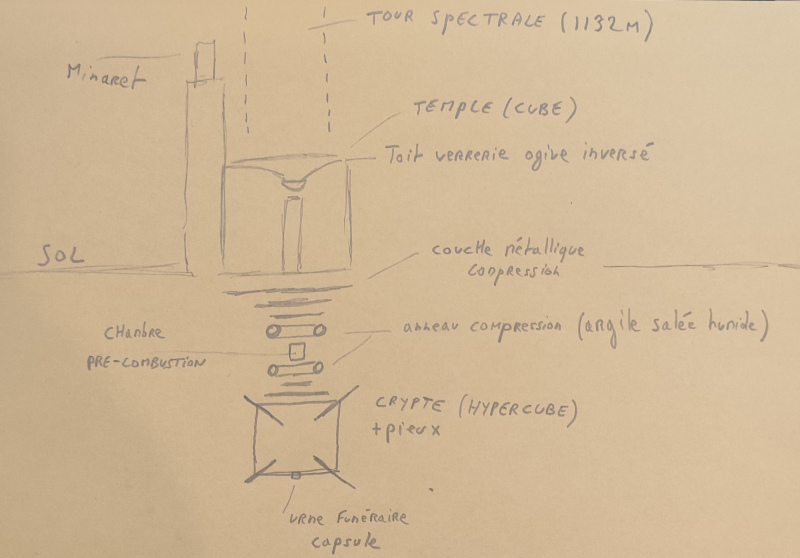 TOUR SPECTRALE (1132M)
Minaret
TEMPLE (CUBE)
Toit verrerie ogive inversé
SOL
couche métallique
compression
anneau compression (argile salée humide)
CHAMBRE
PRE-COMBUSTION
CRYPTE (HYPERCUBE)
+pieux
URNE FUNÉRAIRE
capsule